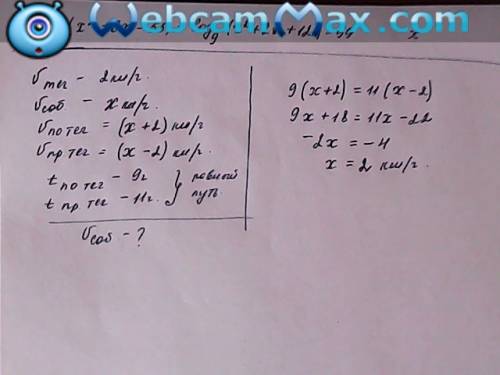 WebcamMax.com
Vтег - 2 км/г.
Vсоб - x км/г.
Vпо тег = (x+2) км/г
Vпр тег = (x-2) км/г.
t по тег - 9г
t пр тег - 11г.
путь
Vсоб - ?
9(x+2) = 11(x-2)
9x+18 = 11x-22
-2x = -4
x = 2 км/г.